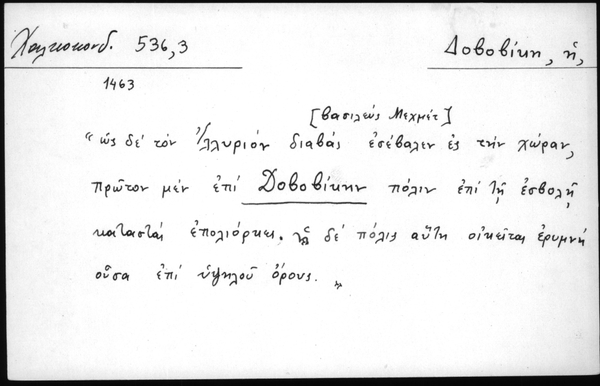 Χαλκοκονδ. 536,3
Δοβοβίκη, ἡ,
1463
[βασιλεὺς Μεχμέτ]
"ὡς δὲ τὸν Ἰλλυριόν διαβὰς ἐσέβαλεν ἐς τὴν χώραν,
πρῶτον μὲν ἐπὶ Δοβοβίκην πόλιν ἐπὶ τῇ ἐσβολῇ
καταστὰς ἐπολιόρκει. ἡ δὲ πόλις αὕτη οἰκεῖται ἐρυμνὴ
οὖσα ἐπὶ ὑψηλοῦ ὄρους. "